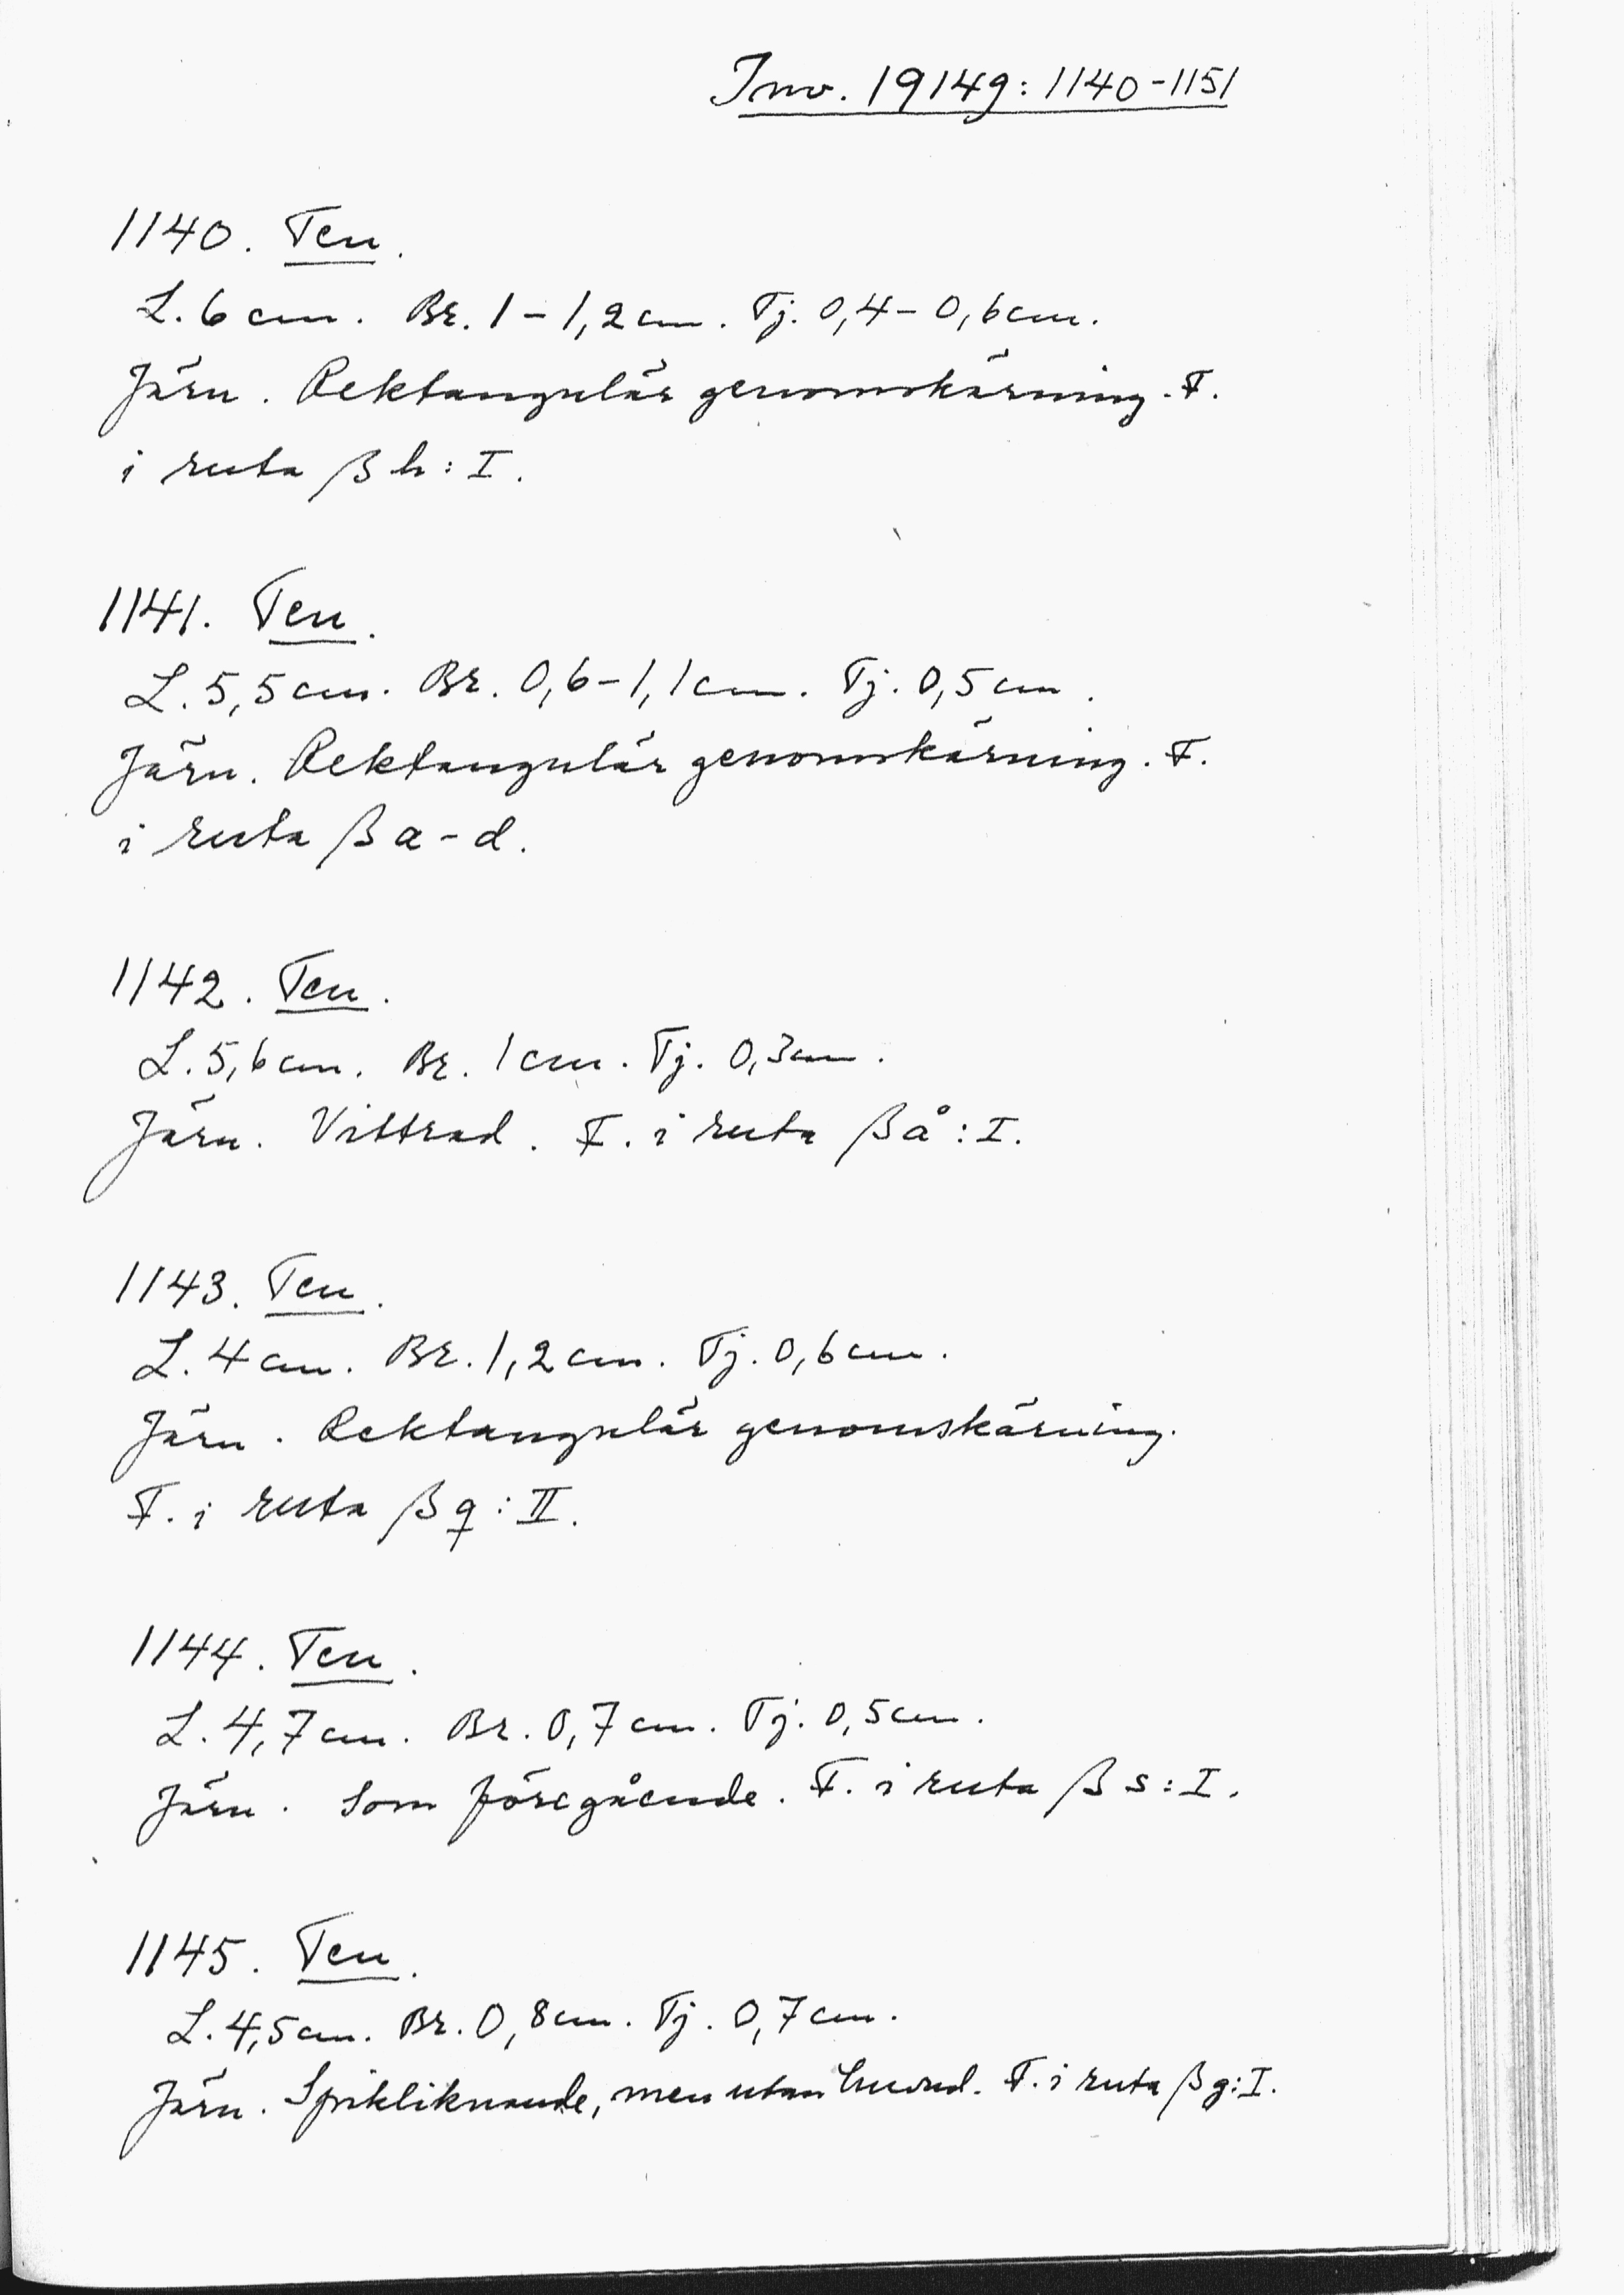 Inv. 19149: 1140-1151
1140. Ten.
L. 6 cm. Br. 1-1,2 cm. Tj. 0,4-0,6 cm.
Järn. Rektangulär genomskärning. F.
i ruta β h: I.
1141. Ten.
L. 5,5 cm. Br. 0,6-1,1 cm. Tj. 0,5 cm.
Järn. Rektangulär genomskärning. F.
i ruta β a-d.
1142. Ten.
L. 5,6 cm. Br. 1 cm. Tj. 0,3 cm.
Järn. Vittrad. F. i ruta β å: I.
1143. Ten.
L. 4 cm. Br. 1,2 cm. Tj. 0,6 cm.
Järn. Rektangulär genomskärning.
F. i ruta β q: II.
1144. Ten.
L. 4,7 cm. Br. 0,7 cm. Tj. 0,5 cm.
Järn. Som föregående. F. i ruta β s: I.
1145. Ten.
L. 4,5 cm. Br. 0,8 cm. Tj. 0,7 cm.
Järn. Spikliknande, men utan huvud. F. i ruta β g: I.